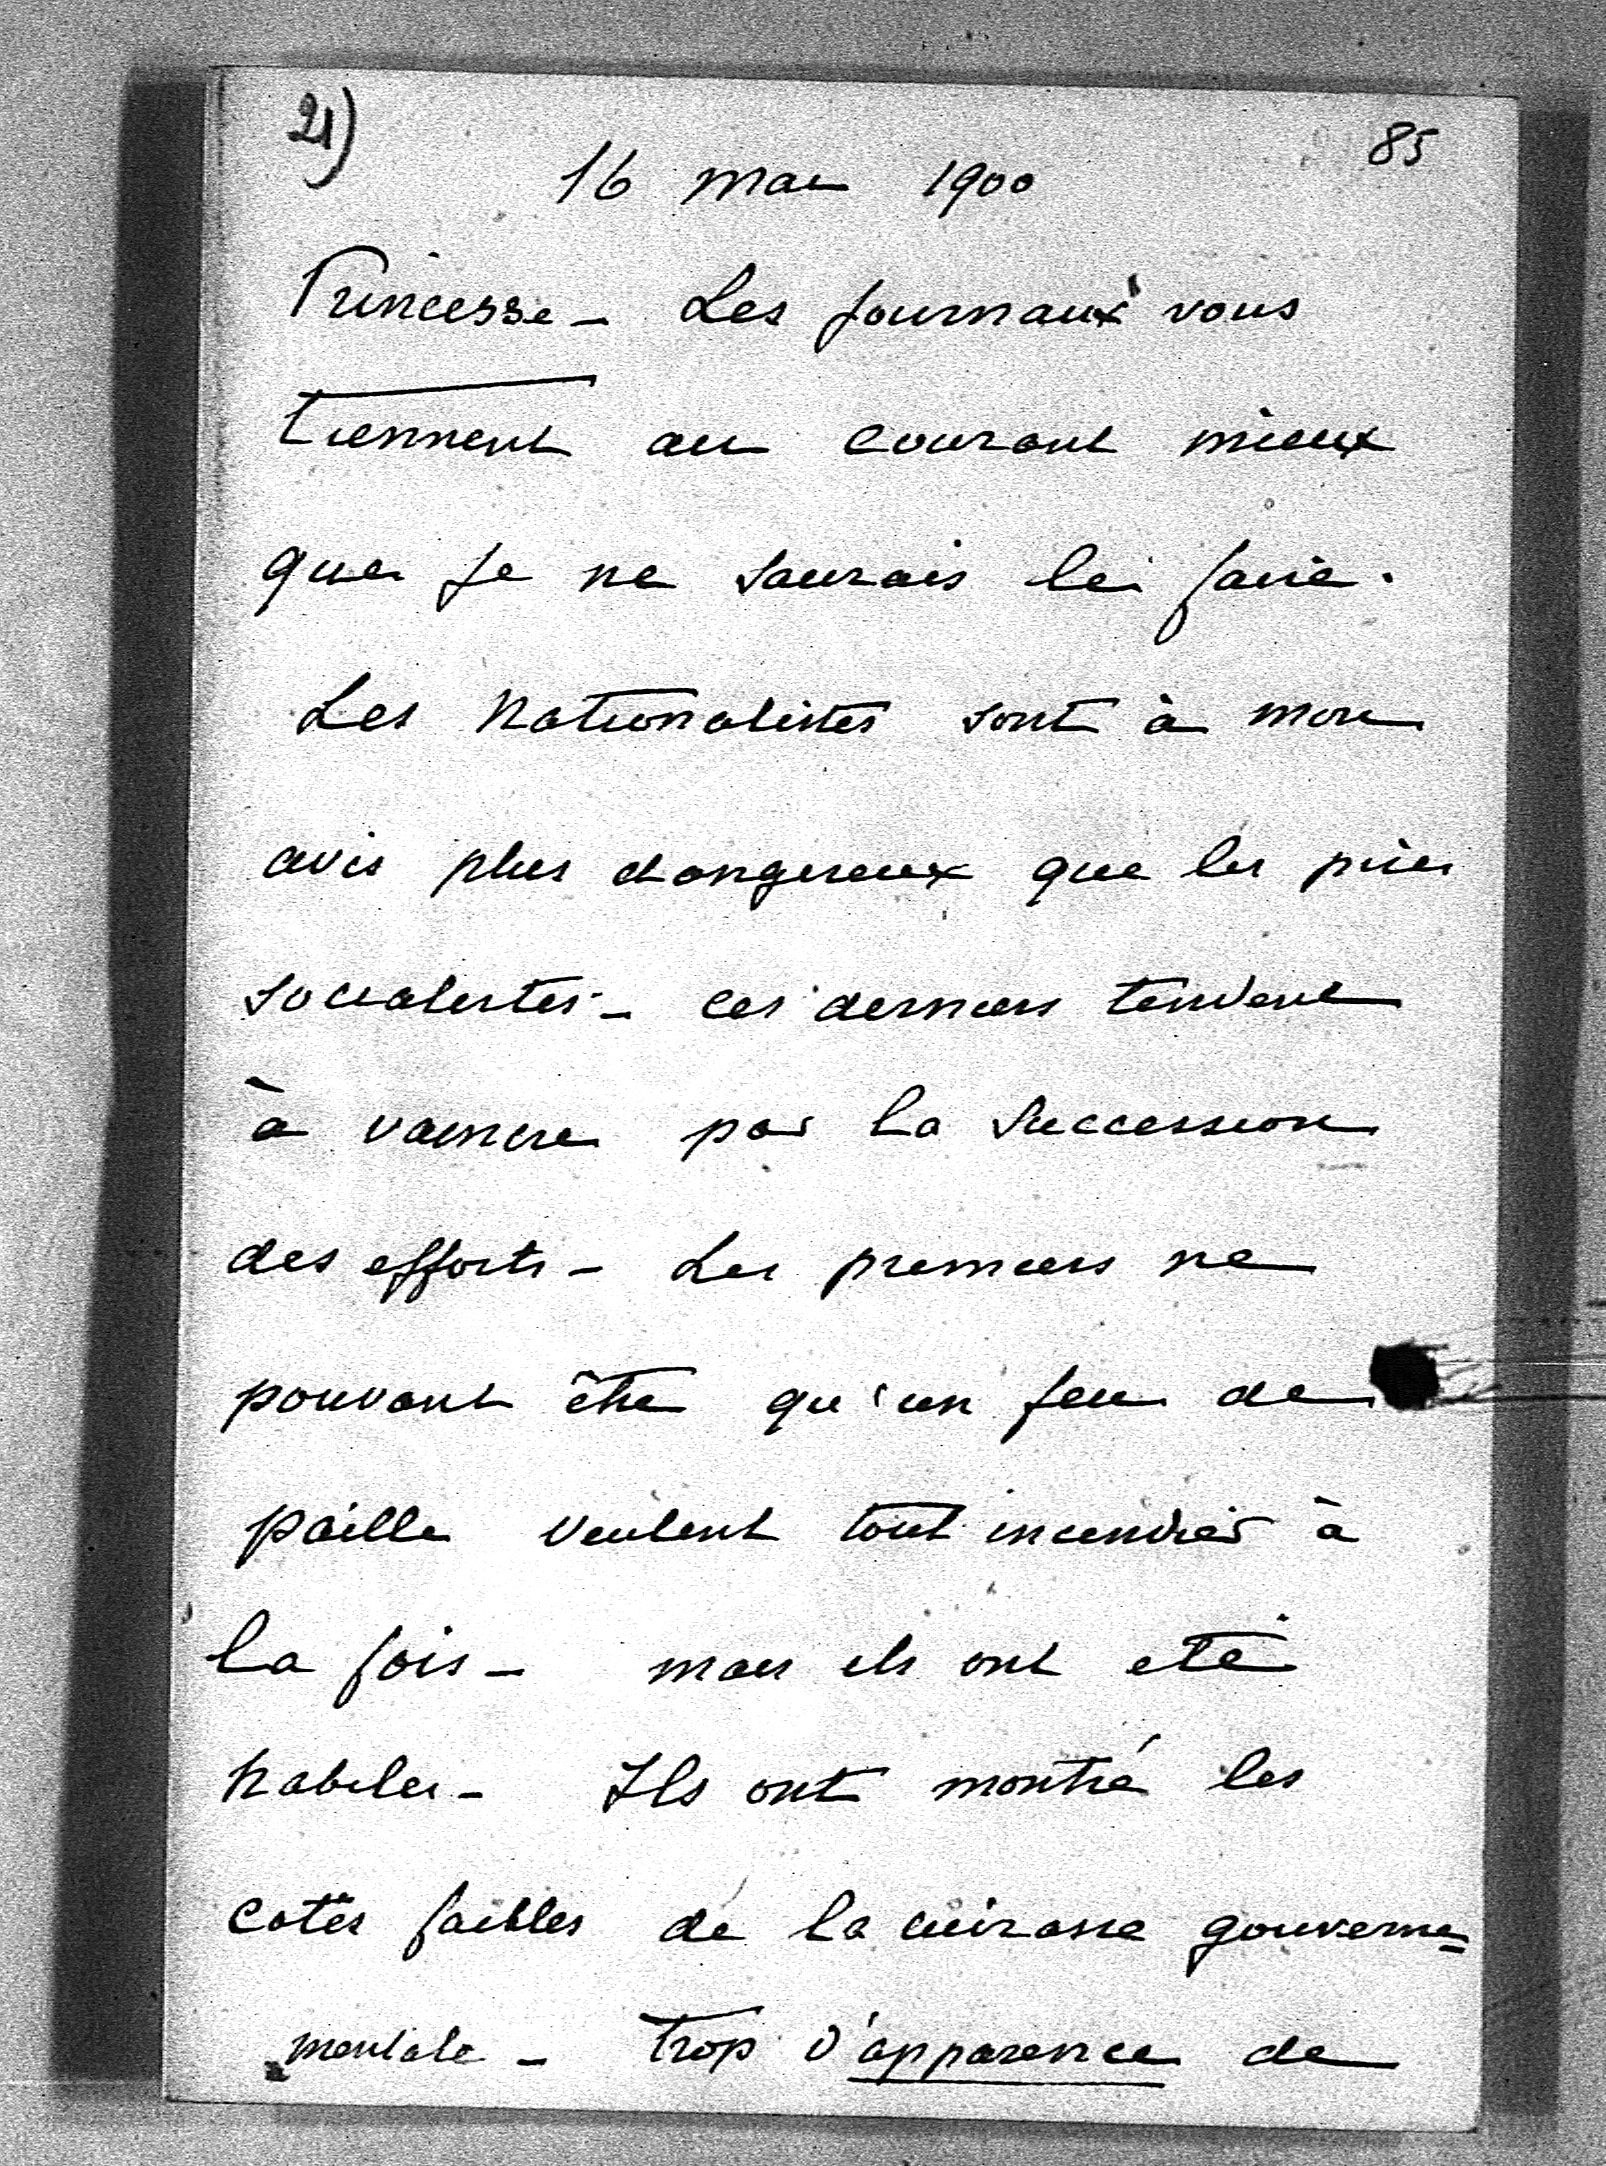 21)
85
16 mai 1900
Princesse - Les journaux vous
tiennent au courant mieux
que je ne saurais le faire.
Les nationalistes sont à mon
avis plus dangereux que les pires
socialistes - ces derniers tendent
à vaincre par la succession
des efforts - Les premiers ne
pouvant être qu'un feu de
paille veulent tout incendier à
la fois - mais ils ont été
habiles - Ils ont montré les
cotés faibles de la cuirasse gouverne=
mentale - trop d'apparence de